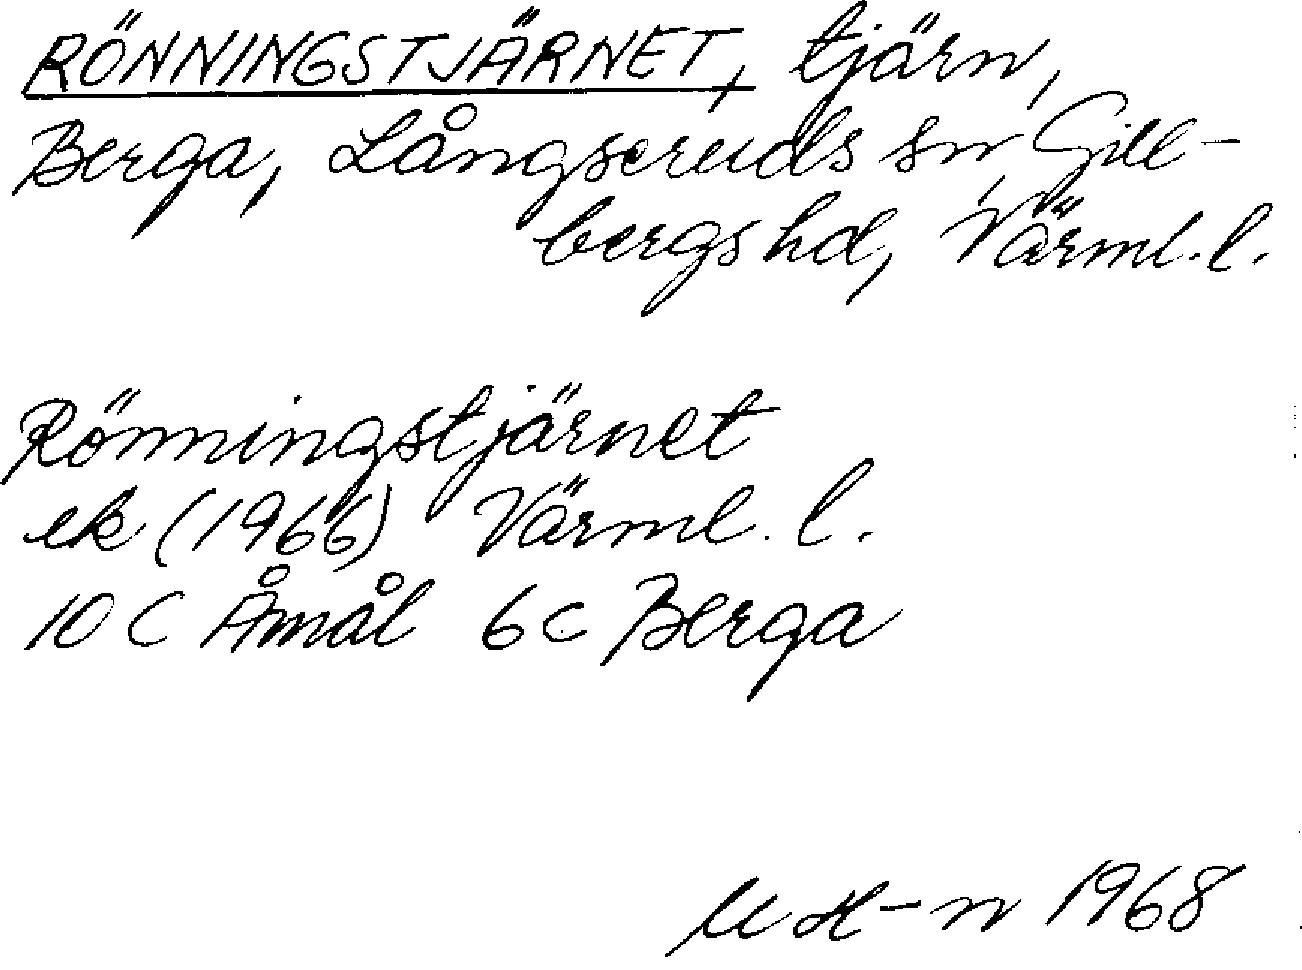 RÖNNINGSTJÄRNET, tjärn,
Berga, Långseruds sn, Gill-
bergs hd, Värml. l.
Rönningstjärnet
ek (1966) Värml. l.
10 C Åmål 6 c Berga
U H-n 1968